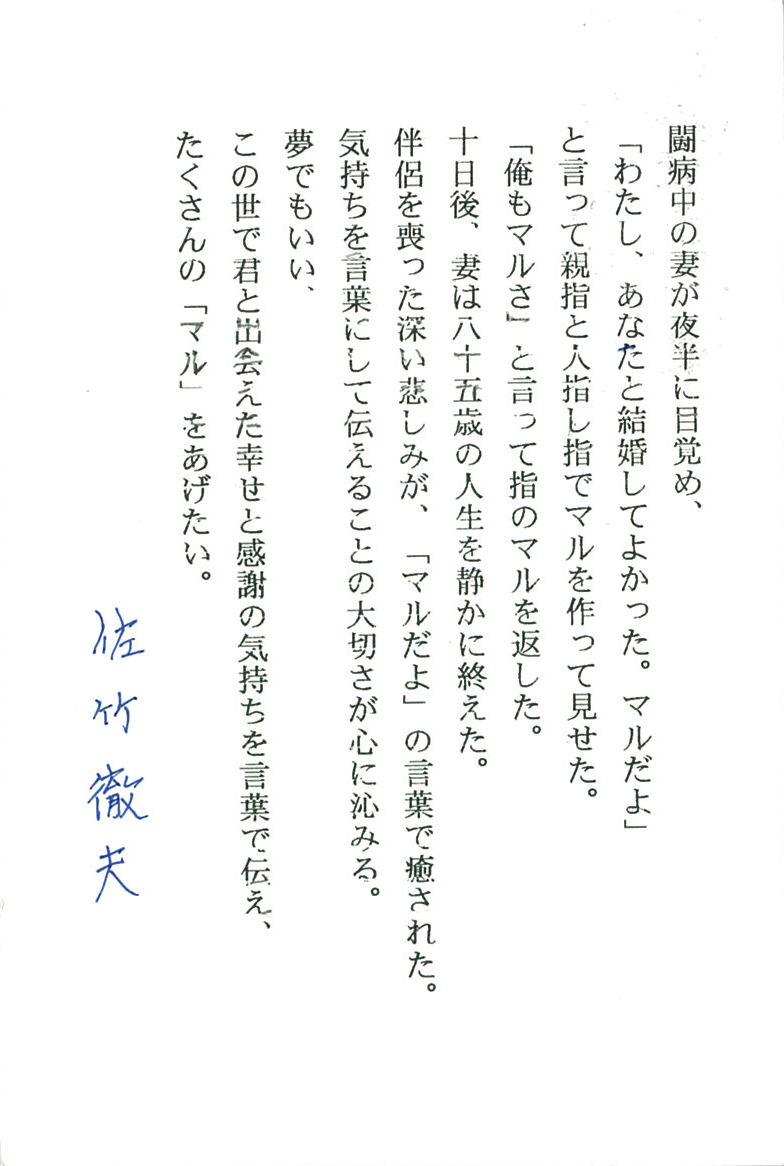 闘病中の妻が夜半に目覚め、
「わたし、あなたと結婚してよかった。マルだよ」
と言って親指と人指し指でマルを作って見せた。
「俺もマルさ」と言って指のマルを返した。
十日後、妻は八十五歳の人生を静かに終えた。
伴侶を喪った深い悲しみが、「マルだよ」の言葉で癒された。
気持ちを言葉にして伝えることの大切さが心に沁みる。
夢でもいい、
この世で君と出会えた幸せと感謝の気持ちを言葉で伝え、
たくさんの「マル」をあげたい。
佐竹徹夫